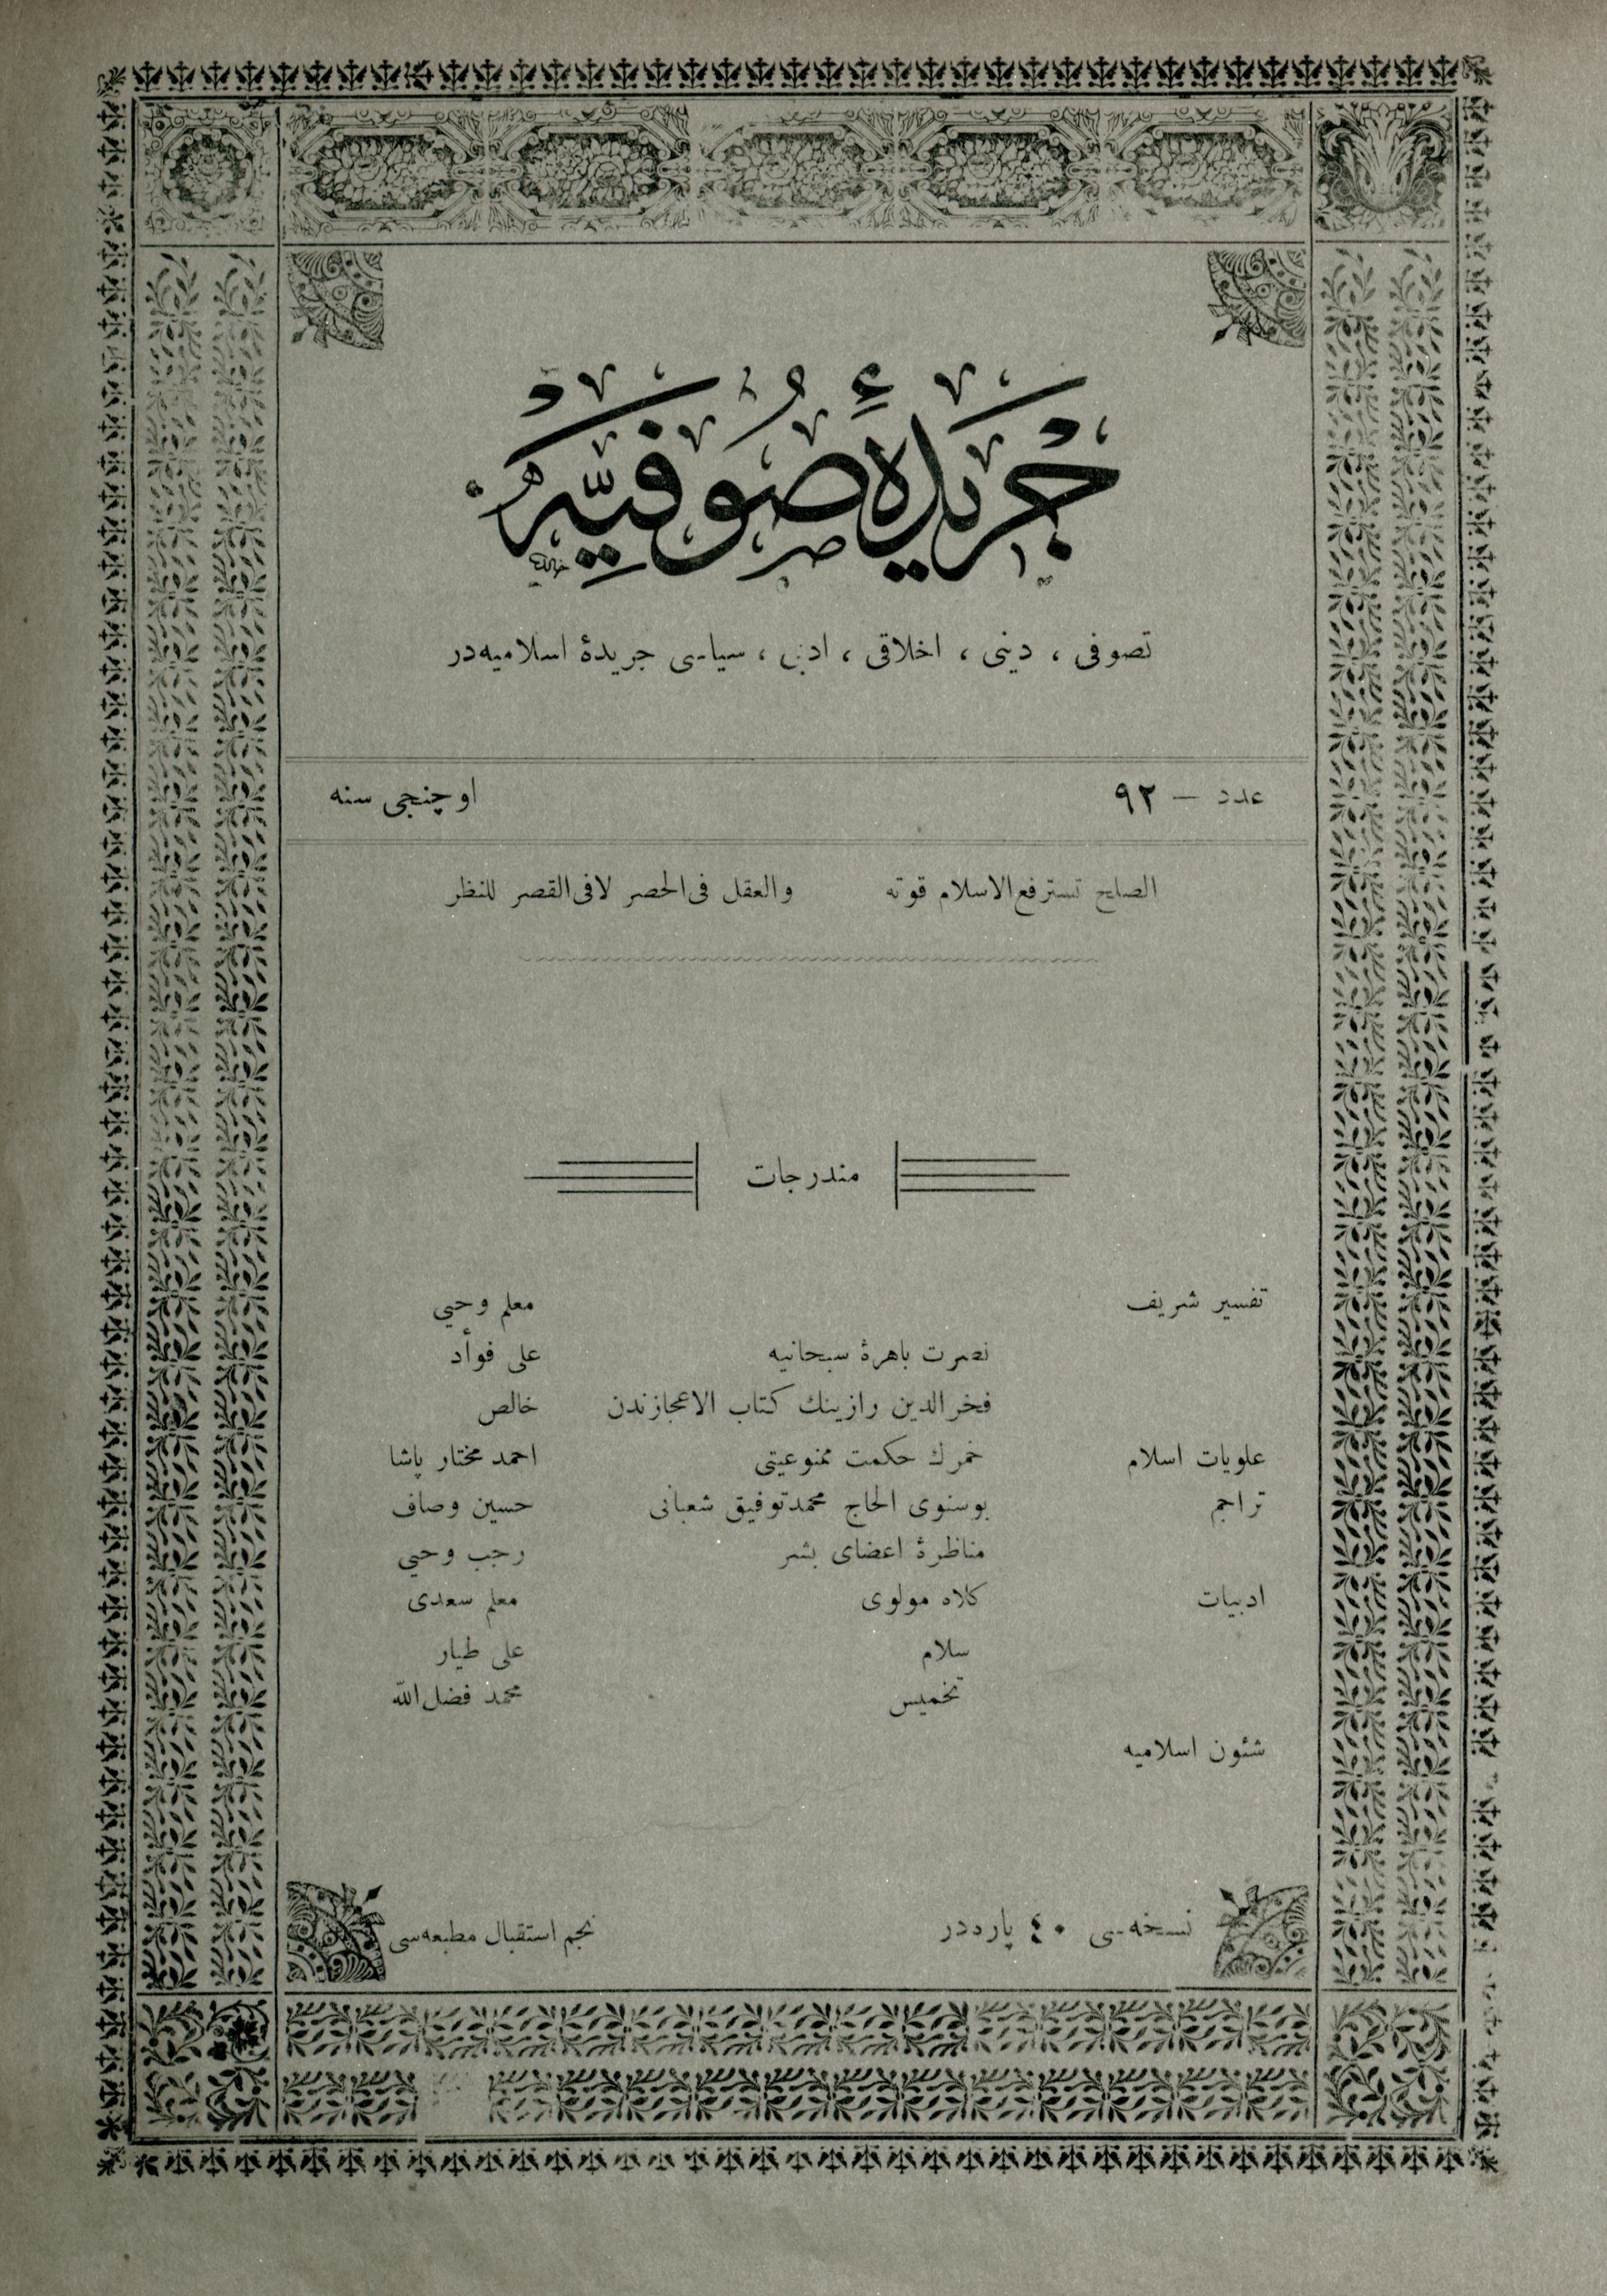 جريدۀ صوفيه
تصوفى ، دينى ، اخلاقى ، ادبى ، سياسى جريدۀ اسلاميه‌در
عدد — ٩٢ اوچنجى سنه
الصلح تسترفع‌الاسلام قوته والعقل فى‌الحصر لافى‌القصر للنظر
مندرجات
تفسير شريف معلم وحيى
نصرت باهرۀ سبحانيه على فوأد
فخرالدين رازينك كتاب الاعجازندن خالص
علويات اسلام خمرك حكمت ممنوعيتى احمد مختار پاشا
تراجم بوسنوى الحاج محمدتوفيق شعبانى حسين وصاف
مناظرۀ اعضاى بشر رجب وحيى
ادبيات كلاه مولوى معلم سعدى
سلام على طيار
تخميس محمد فضل‌الله
شئون اسلاميه
نسخه‌سى ٤٠ پارددر نجم استقبال مطبعه‌سى